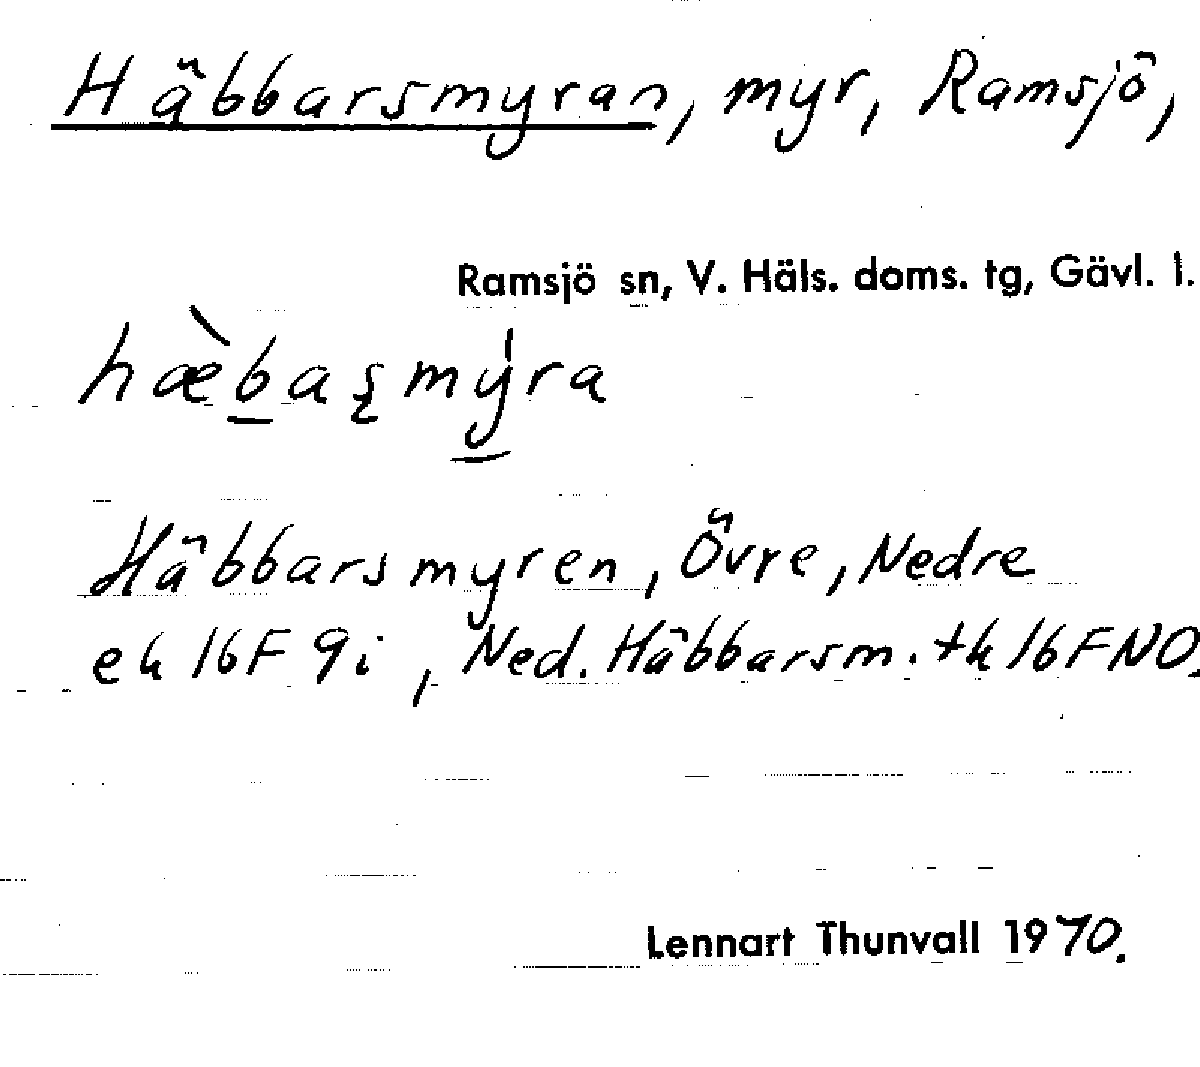 Häbbarsmyran, myr, Ramsjö,
Ramsjö sn, V. Häls. doms. tg, Gävl. l.
hæ̀b̲aʂmý̲ra
Häbbarsmyren, Övre, Nedre
ek 16F 9i, Ned. Häbbarsm. tk 16FNO.
Lennart Thunvall 1970.